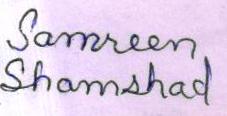 Samreen
Shamshad